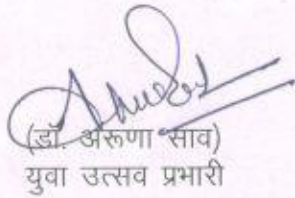 (डॉ. अरूणा साव)
युवा उत्सव प्रभारी